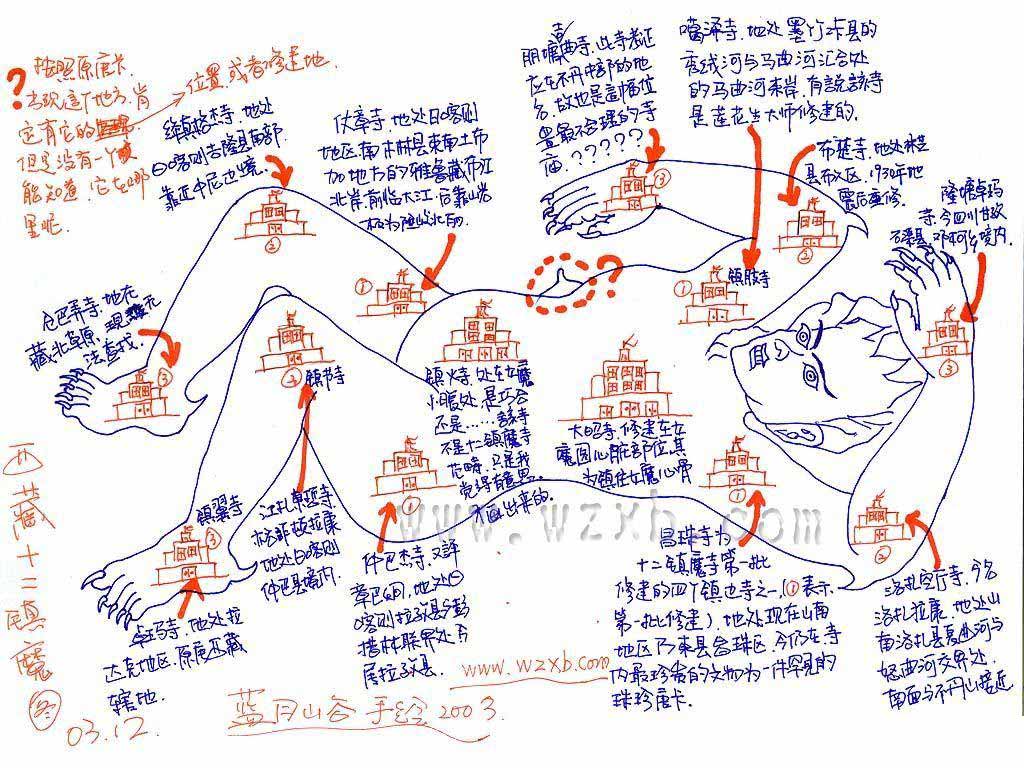 按照原唐卡.
出现这个地方,肯
定有它的 位置,或者修建地.
但是没有一个
能知道,它在哪
里呢.
?
缔真格杰寺,地处
日喀则吉隆县南部
靠近中尼边境.
仗拳寺,地处日喀则
地区,南木林县东南土布
加地方的雅鲁藏布江
北岸,前临大江,后靠山岩
朋塘曲寺,此寺岩还
应在不丹中部的地
名,故也是這幅位
置最不合理的寺
庙??????
噶泽寺,地处墨竹卡县的
秀绒河与马曲河汇合处
的马曲河东岸,有説該寺
是莲花生大师修建的.
布楚寺,地处林芝
县布久区,1930年地
震后重修.
隆塘卓玛
寺,今四川甘孜
石渠县,邓柯乡境内.
仓巴弄寺,地在
藏北草原,现無
法查找.
③
②
①
③
②
①
③
②
①
③
①
②
镇肢寺
镇节寺
镇翼寺
?
镇火寺,处在女魔
小腹处,是巧合
还是……該寺
不是十二镇魔寺
范畴,只是我
觉得有意思,
才画出来的.
大昭寺,修建在女
魔图心脏部位,其
为镇住女魔心骨
江扎東哲寺
松邦頓拉康
地处日喀则
仲巴县境内.
仲巴杰寺,又評
章巴町,地处日
喀则拉孜县与彭
措林联界处,为
尾拉孜县.
卓玛寺,地处拉
达克地区,原属西藏
辖地.
昌珠寺为
十二镇魔寺第一批
修建的四个镇边寺之一,(①表示
第一批修建),地处现在山南
地区乃东县昌珠区,今仍在寺
内最珍贵的文物为一件罕見的
珠珍唐卡.
洛扎空厅寺,今名
洛扎拉康,地处山
南洛扎县夏曲河与
怒曲河交界处,
南面与不丹山接近
西藏十二镇魔图
03.12.
蓝月山谷手绘2003.
www.wzxb.com
www.wzxb.com